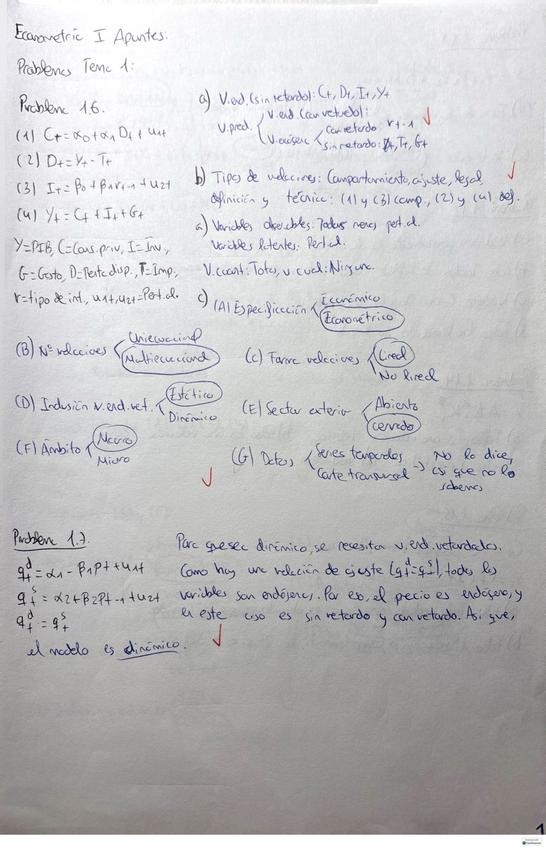 Econometría I Apuntes:
Problemas Tema 1:
Problema 1.6.
(1) Ct = α0 + α1 Dt + u1t
(2) Dt = Yt - Tt
(3) It = β0 + β1 rt-1 + u2t
(4) Yt = Ct + It + Gt
Y=PIB, C=Cons. priv, I=Inv.,
G=Gasto, D=Renta disp., T=Imp.,
r=tipo de int, u1t, u2t=Pert. al.
a) V. end. (sin retardo): Ct, Dt, It, Yt
V. pred. V. end (con retardo):
V. exóg con retardo: rt-1
sin retardo: Tt, Gt
b) Tipos de relaciones: Comportamiento, ajuste, legal,
definición y técnica: (1) y (3) comp., (2) y (4) def.
a) Variables observables: Todas menos pert. al.
Variables latentes: Pert. al.
V. cuant: Todas, v. cual: Ninguna.
c) (A) Especificación Económico
Econométrico
(B) Nº relaciones Uniecuacional
Multiecuacional
(C) Forma relaciones Lineal
No lineal
(D) Inclusión v. end. ret. Estático
Dinámico
(E) Sector exterior Abierto
Cerrado
(F) Ámbito Macro
Micro
(G) Datos Series temporales
Corte transversal → No lo dice,
así que no lo
sabemos
Problema 1.7.
qt^d = α1 - β1 Pt + u1t
qt^s = α2 + β2 Pt-1 + u2t
qt^d = qt^s
Para que sea dinámico, se necesitan v. end. retardadas.
Como hay una relación de ajuste (qt^d = qt^s), todas las
variables son endógenas. Por eso, el precio es endógeno, y
en este caso es sin retardo y con retardo. Así que,
el modelo es dinámico.
1